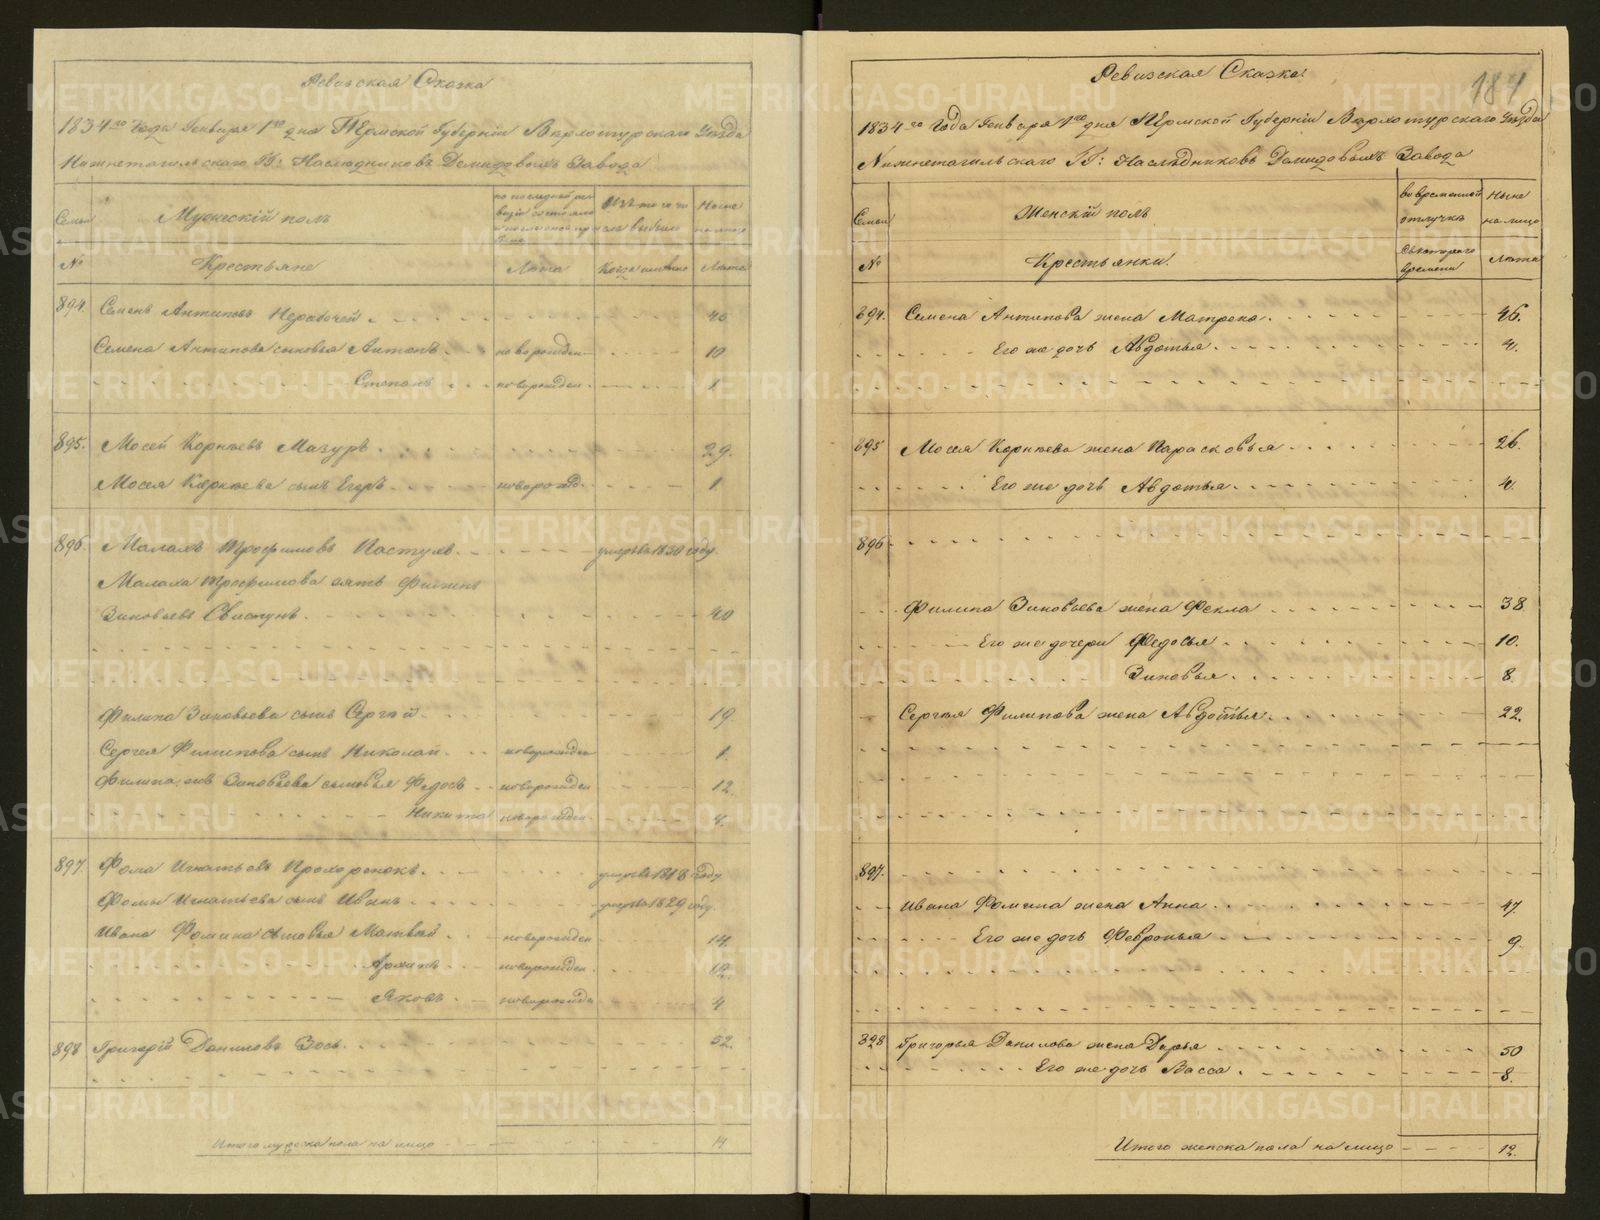 Ревизская Сказка
1834го Года Генваря 1го дня Пермской Губернии Верхотурскаго Уѣзда
Нижнетагильскаго ГГ: Наслѣдниковъ Демидовыхъ Завода
Семьи
Мужескій полъ
по последней ревизіи состояло
Изъ того числа выбыло
Ныне на лицо
№
Крестьяне
Лѣта
Когда именно
Лѣта
894. Семенъ Антиповъ 46
Семена Антипова сыновья Антонъ новорожден 10
Степанъ новорожден 1
895. Мосей Корнѣевъ Мазуръ 29.
Мосея Корнѣева сынъ Егоръ новорожд. 1
896. Малахъ Трофимовъ Пастухъ умеръ въ 1830 году
Малаха Трофимова зять Филипъ
Зиновьевъ Свистунъ 40
Филипа Зиновьева сынъ Сергѣй 19
Сергея Филипова сынъ Николай новорожден 1.
Филипа Зиновьева сыновья Федосъ новорожден 12.
Никита новорожден 4.
897. Фома Игнатьевъ умеръ въ 1818 году
Фомы Игнатьева сынъ Иванъ умеръ въ 1829 году.
Ивана Фомина сыновья Матвѣй новорожден 14
новорожден 12.
Яковъ новорожден 4
898 Григорій Даниловъ Зось. 52.
Итого мужеска пола на лицо 14
184
Ревизская Сказка
1834го Года Генваря 1го дня Пермской Губернии Верхотурскаго Уѣзда
Нижнетагильскаго ГГ: Наслѣдниковъ Демидовыхъ Завода
Семьи
Женскій полъ
во временной отлучкѣ
Ныне на лицо
№
Крестьянки.
Съ котораго времени
Лѣта
894. Семена Антипова жена Матрена 46.
Его же дочь Авдотья 4.
895 Мосея Корнѣева жена Парасковья 26.
Его же дочь Авдотья 4.
896
Филипа Зиновьева жена Фекла 38
Его же дочери Федосья 10.
Зиновья 8
Сергея Филипова жена Авдотья 22.
897.
Ивана Фомина жена Анна 47
Его же дочь Февронья 9.
898 Григорья Данилова жена Дарья 50
Его же дочь Васса 8.
Итого женска пола на лицо 12.
METRIKI.GASO-URAL.RU